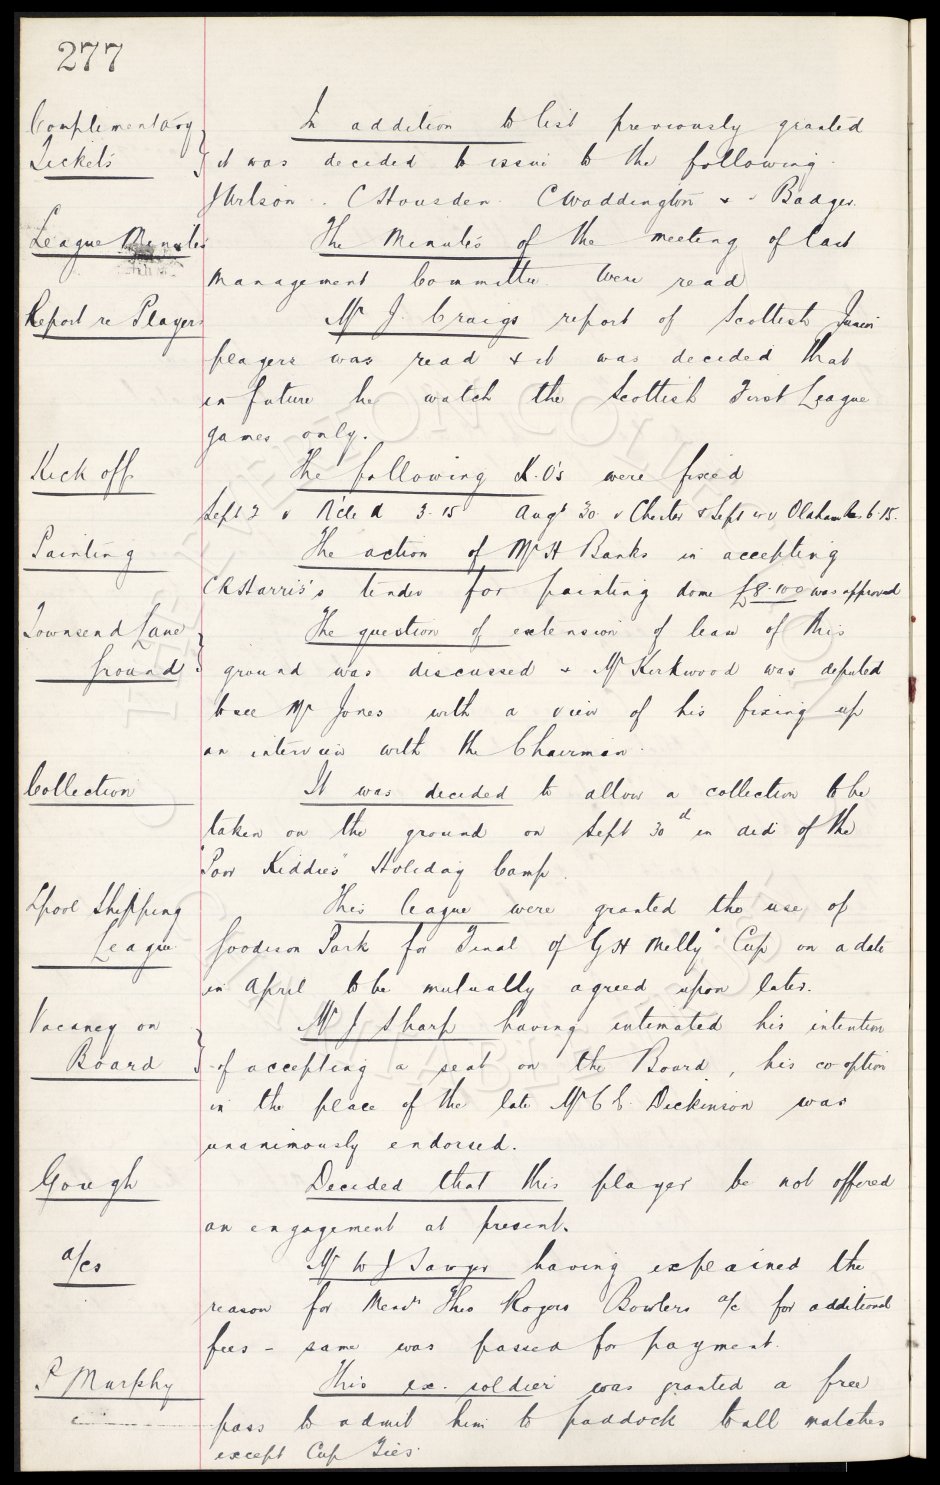 277
Complimentary
Tickets
In addition to list previously granted
it was decided to issue to the following.
J Wilson. C Housden. C Waddington & Badger.
League Minutes
The Minutes of the meeting of last
Management Committee were read
Report re Players
Mr J. Craigs report of Scottish Junior
players was read & it was decided that
in future he watch the Scottish First League
games only.
Kick off
The following K.O's were fixed
Sept 2 v N'cle U 3-15 Augt 30 v Chester & Sept v Oldham 6-15.
Painting
The action of Mr H Banks in accepting
C R Harris's tender for painting dome £8-10-0 was approved
Townsend Lane
Ground
The question of extension of lease of this
ground was discussed & Mr Kirkwood was deputed
to see Mr Jones with a view of his fixing up
an interview with the Chairman.
Collection
It was decided to allow a collection to be
taken on the ground on Sept 30d in aid of the
"Poor Kiddies" Holiday Camp.
Lpool Shipping
League
This league were granted the use of
Goodison Park for Final of "G H Melly" Cup on a date
in April to be mutually agreed upon later.
Vacancy on
Board
Mr J Sharp having intimated his intention
of accepting a seat on the Board, his co-option
in the place of the late Mr C E. Dickinson was
unanimously endorsed.
Gough
Decided that this player be not offered
an engagement at present.
a/cs
Mr W J Sawyer having explained the
reason for Messrs Theo Rogers Bowlers a/c for additional
fees - same was passed for payment.
P Murphy
This ex-soldier was granted a free
pass to admit him to paddock to all matches
except Cup Ties.